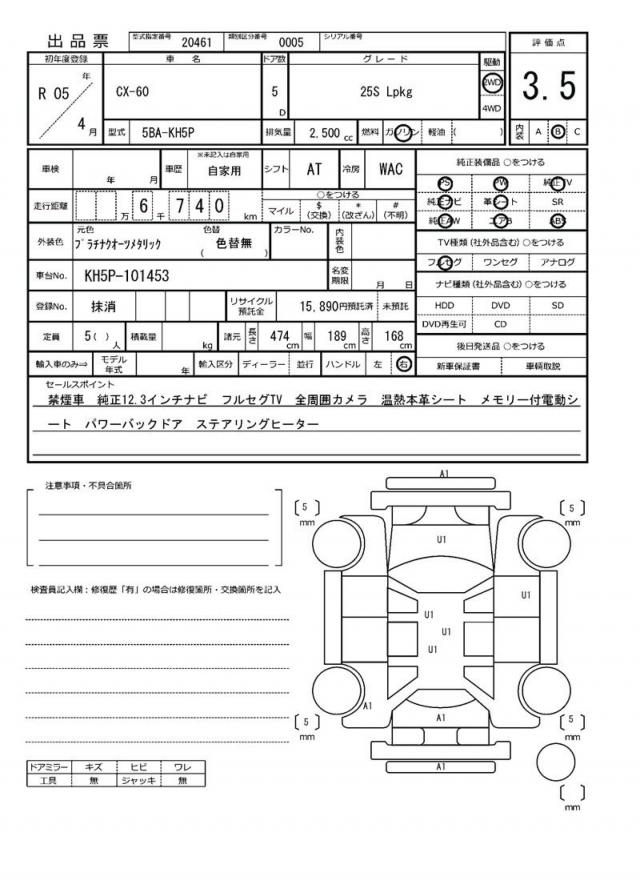 出品票 型式指定番号 20461 類別区分番号 0005 シリアル番号
評価点
3.5
内装 A B C
初年度登録 車名 ドア数 グレード 駆動
R 05 年 4 月 CX-60 5 D 25S Lpkg 2WD 4WD
型式 5BA-KH5P 排気量 2,500 cc 燃料 ガソリン 軽油 ( )
車検 年 月 車歴 ※未記入は自家用 自家用 シフト AT 冷房 WAC
走行距離 万 6 千 7 4 0 km ○をつける マイル $(交換) *(改ざん) #(不明)
外装色 元色 プラチナクオーツメタリック 色替 ( 色替無 ) カラーNo. 内装色
車台No. KH5P-101453 名変期限 月 日
登録No. 抹消 リサイクル預託金 15,890円預託済 未預託
定員 5( ) 人 積載量 kg 諸元 長さ 474 cm 幅 189 cm 高さ 168 cm
輸入車のみ⇒ モデル年式 年 輸入区分 ディーラー 並行 ハンドル 左 右
純正装備品 ○をつける
PS PW 純正TV
純正ナビ 革シート SR
純正AW エアB ABS
TV種類 (社外品含む) ○をつける
フルセグ ワンセグ アナログ
ナビ種類 (社外品含む) ○をつける
HDD DVD SD
DVD再生可 CD
後日発送品 ○をつける
新車保証書 車輌取説
セールスポイント
禁煙車 純正12.3インチナビ フルセグTV 全周囲カメラ 温熱本革シート メモリー付電動シ
ート パワーバックドア ステアリングヒーター
注意事項・不具合箇所
検査員記入欄：修復歴「有」の場合は修復箇所・交換箇所を記入
ドアミラー キズ ヒビ ワレ
工具 無 ジャッキ 無
A1
5 mm
5 mm
U1
U1
U1
U1
U1
A1
A1
5 mm
5 mm
A1
mm